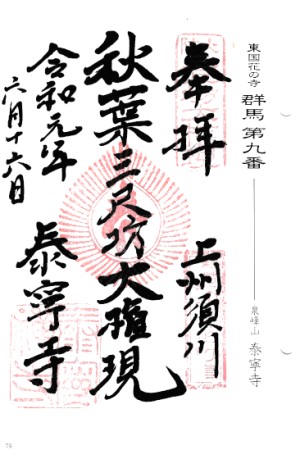 東国花の寺 群馬 第九番 泉峰山 泰寧寺
奉拝 上州須川
秋葉三尺坊大権現
令和元年 泰寧寺
六月十六日